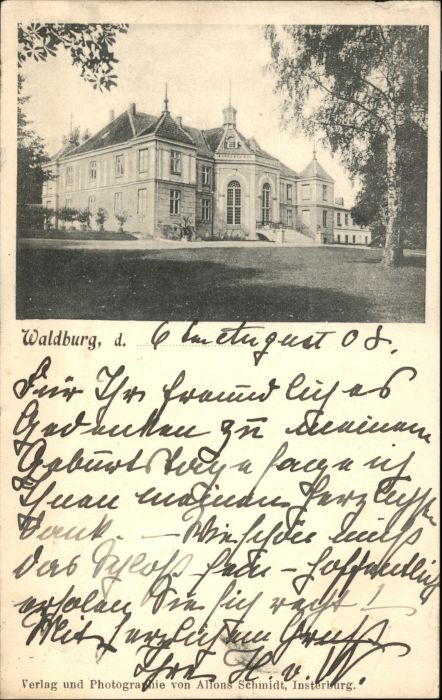 Waldburg, d. 6ten August 08.
Für Ihr freundliches
Gedenken zu meinem
Geburtstage sage ich
Ihnen meinen herzlichsten
Dank. — Wie schön muß
das Schloß sein — hoffentlich
erholen Sie sich recht!
Mit herzlichem Gruß
Ihre H. v. W.
Verlag und Photographie von Alfons Schmidt, Insterburg.